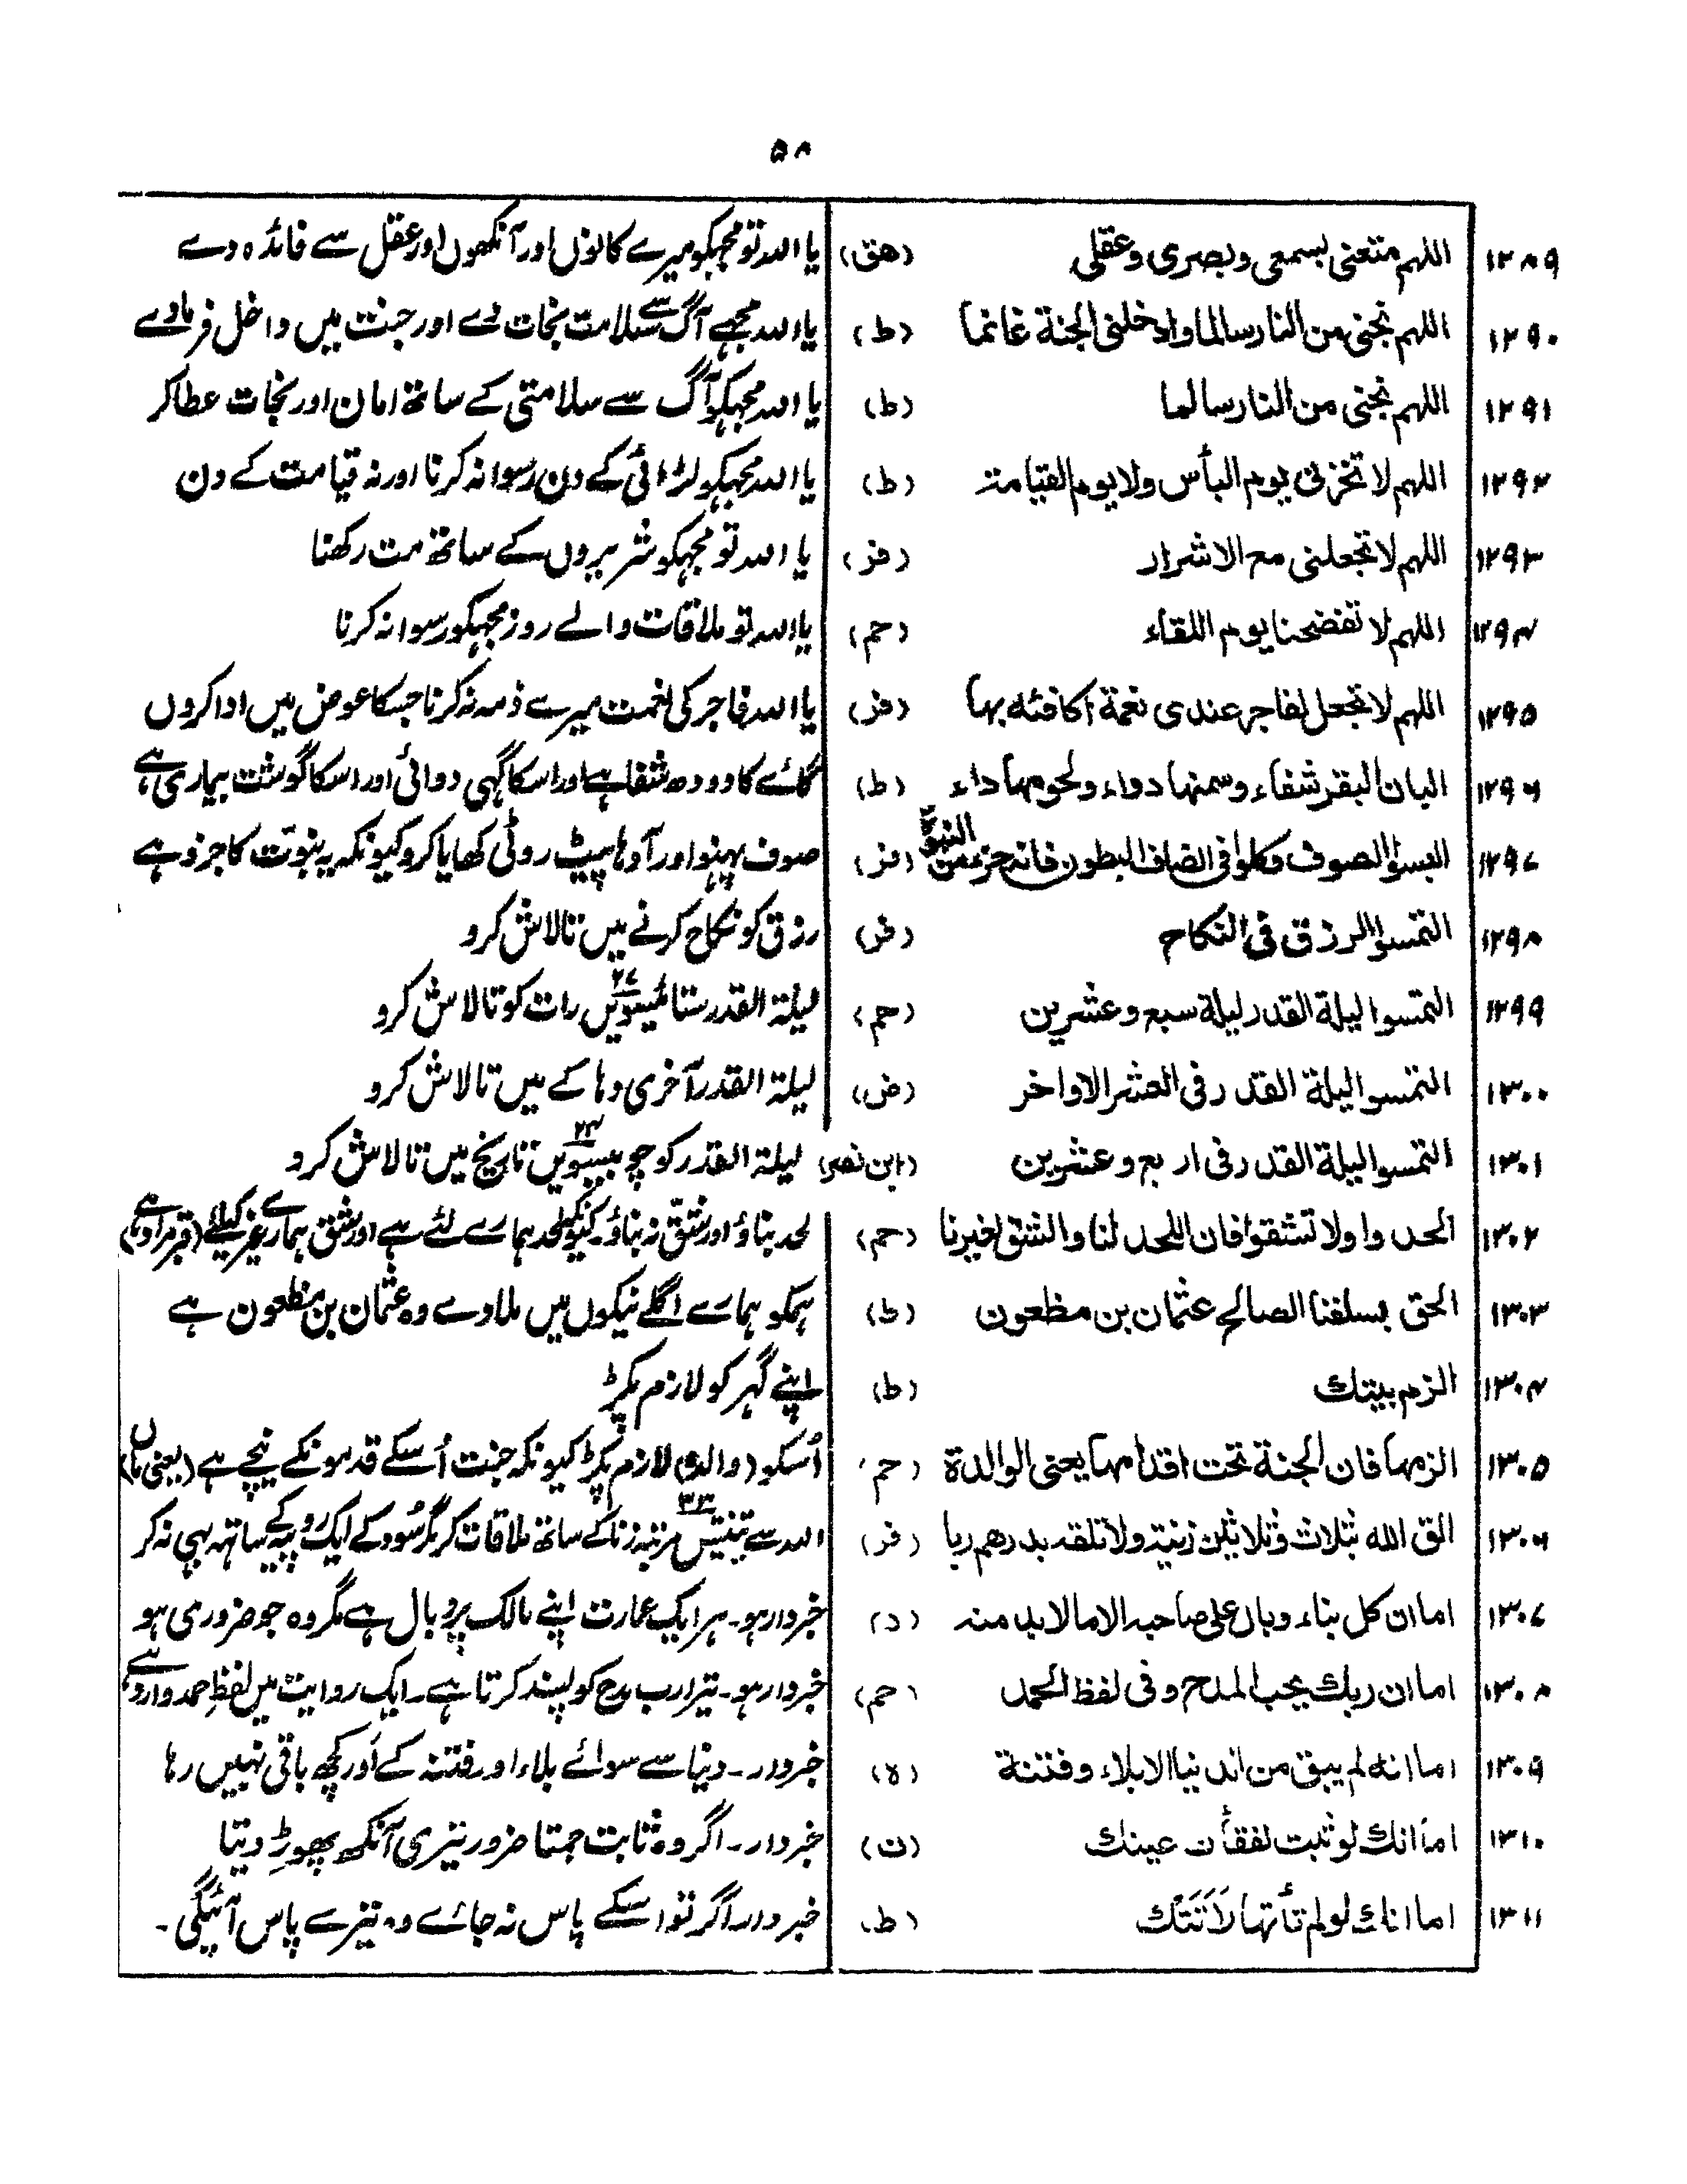 ۵۸
۱۲۸۹ اللهم متعنی بسمعی وبصری وعقلی (هق) یا اللہ تو مجہکو میرے کانوں اور آنکھوں اور عقل سے فائدہ دے
۱۲۹۰ اللهم نجنی من النار سالما وادخلنی الجنة غانما (ط) یا اللہ مجہے آگ سے سلامت نجات دے اور جنت میں داخل فرماوے
۱۲۹۱ اللهم نجنی من النار سالما (ط) یا اللہ مجہکو آگ سے سلامتی کے ساتھ امان اور نجات عطا کر
۱۲۹۲ اللهم لا تخزنی یوم البأس ولا یوم القیامة (ط) یا اللہ مجہکو لڑائی کے دن رسوا نہ کرنا اور نہ قیامت کے دن
۱۲۹۳ اللهم لا تجعلنی مع الاشرار (فز) یا اللہ تو مجہکو شریروں کے ساتھ مت رکھنا
۱۲۹۴ اللهم لا تفضحنا یوم اللقاء (حم) یا اللہ تو ملاقات والے روز مجہکو رسوا نہ کرنا
۱۲۹۵ اللهم لا تجعل لفاجر عندی نعمة اکافئه بها (فز) یا اللہ فاجر کی نعمت میرے ذمہ نہ کرنا جسکا عوض میں ادا کروں
۱۲۹۶ البان البقر شفاء وسمنها دواء ولحومها داء (ط) گائے کا دودھ شفا ہے اور اسکا گہی دوائی اور اسکا گوشت بیماری ہے
۱۲۹۷ البسوا الصوف وکلوا فی انصاف البطون فانه جزء من النبوة (فز) صوف پہنو اور آدہا پیٹ روٹی کھایا کرو کیونکہ یہ نبوّت کا جزو ہے
۱۲۹۸ التمسوا الرزق فی النکاح (فر) رزق کو نکاح کرنے میں تالاش کرو
۱۲۹۹ التمسوا لیلة القدر لیلة سبع وعشرین (حم) لیلۃ القدر ستائیسویں ۲۷ رات کو تالاش کرو
۱۳۰۰ التمسوا لیلة القدر فی العشر الاواخر (ض) لیلۃ القدر آخری دہاکے میں تالاش کرو
۱۳۰۱ التمسوا لیلة القدر فی اربع وعشرین (ابن نصر) لیلۃ القدر کو چوبیسویں ۲۴ تاریخ میں تالاش کرو
۱۳۰۲ الحدوا ولا تشقوا فان اللحد لنا والشق لغیرنا (حم) لحد بناؤ اور شقّ نہ بناؤ۔ کیونکہ لحد ہمارے لئے ہے اور شق ہمارے غیر کیلئے (قبر مراد ہے)
۱۳۰۳ الحق بسلفنا الصالح عثمان بن مظعون (ط) ہمکو ہمارے اگلے نیکوں میں ملاوے وہ عثمان بن مظعون ہے
۱۳۰۴ الزم بیتك (ط) اپنے گہر کو لازم پکڑ
۱۳۰۵ الزمها فان الجنة تحت اقدامها یعنی الوالدة (حم) اُسکو (والدہ) لازم پکڑ کیونکہ جنت اُسکے قدمونکے نیچے ہے (یعنی ماں)
۱۳۰۶ الق الله بثلاث وثلاثین زنیة ولا تلقه بدرهم ربا (فر) اللہ سے تینتیس ۳۳ مرتبہ زنا کے ساتھ ملاقات کر مگر سُود کے ایک روپیہ کے ساتہہ بہی نہ کر
۱۳۰۷ اما ان کل بناء وبال علی صاحبه الا ما لا بد منه (د) خبردار ہو۔ ہر ایک عمارت اپنے مالک پر وبال ہے مگر وہ جو ضروری ہو
۱۳۰۸ اما ان ربك یحب المدح وفی لفظ الحمد (حم) خبردار ہو۔ تیرا رب مدح کو پسند کرتا ہے۔ ایک روایت میں لفظِ حمد وارد ہے
۱۳۰۹ اما انه لم یبق من الدنیا الا بلاء وفتنة (ہ) خبردار۔ دنیا سے سوائے بلاء اور فتنہ کے اَور کچھ باقی نہیں رہا
۱۳۱۰ اما انك لو ثبت لفقأت عینك (ن) خبردار۔ اگر وہ ثابت جمتا ضرور تیری آنکھ پھوڑ دیتا
۱۳۱۱ اما انك لو لم تأتها لَاَتَتْك (ط) خبردار اگر تو اسکے پاس نہ جائے وہ تیرے پاس آئیگی۔